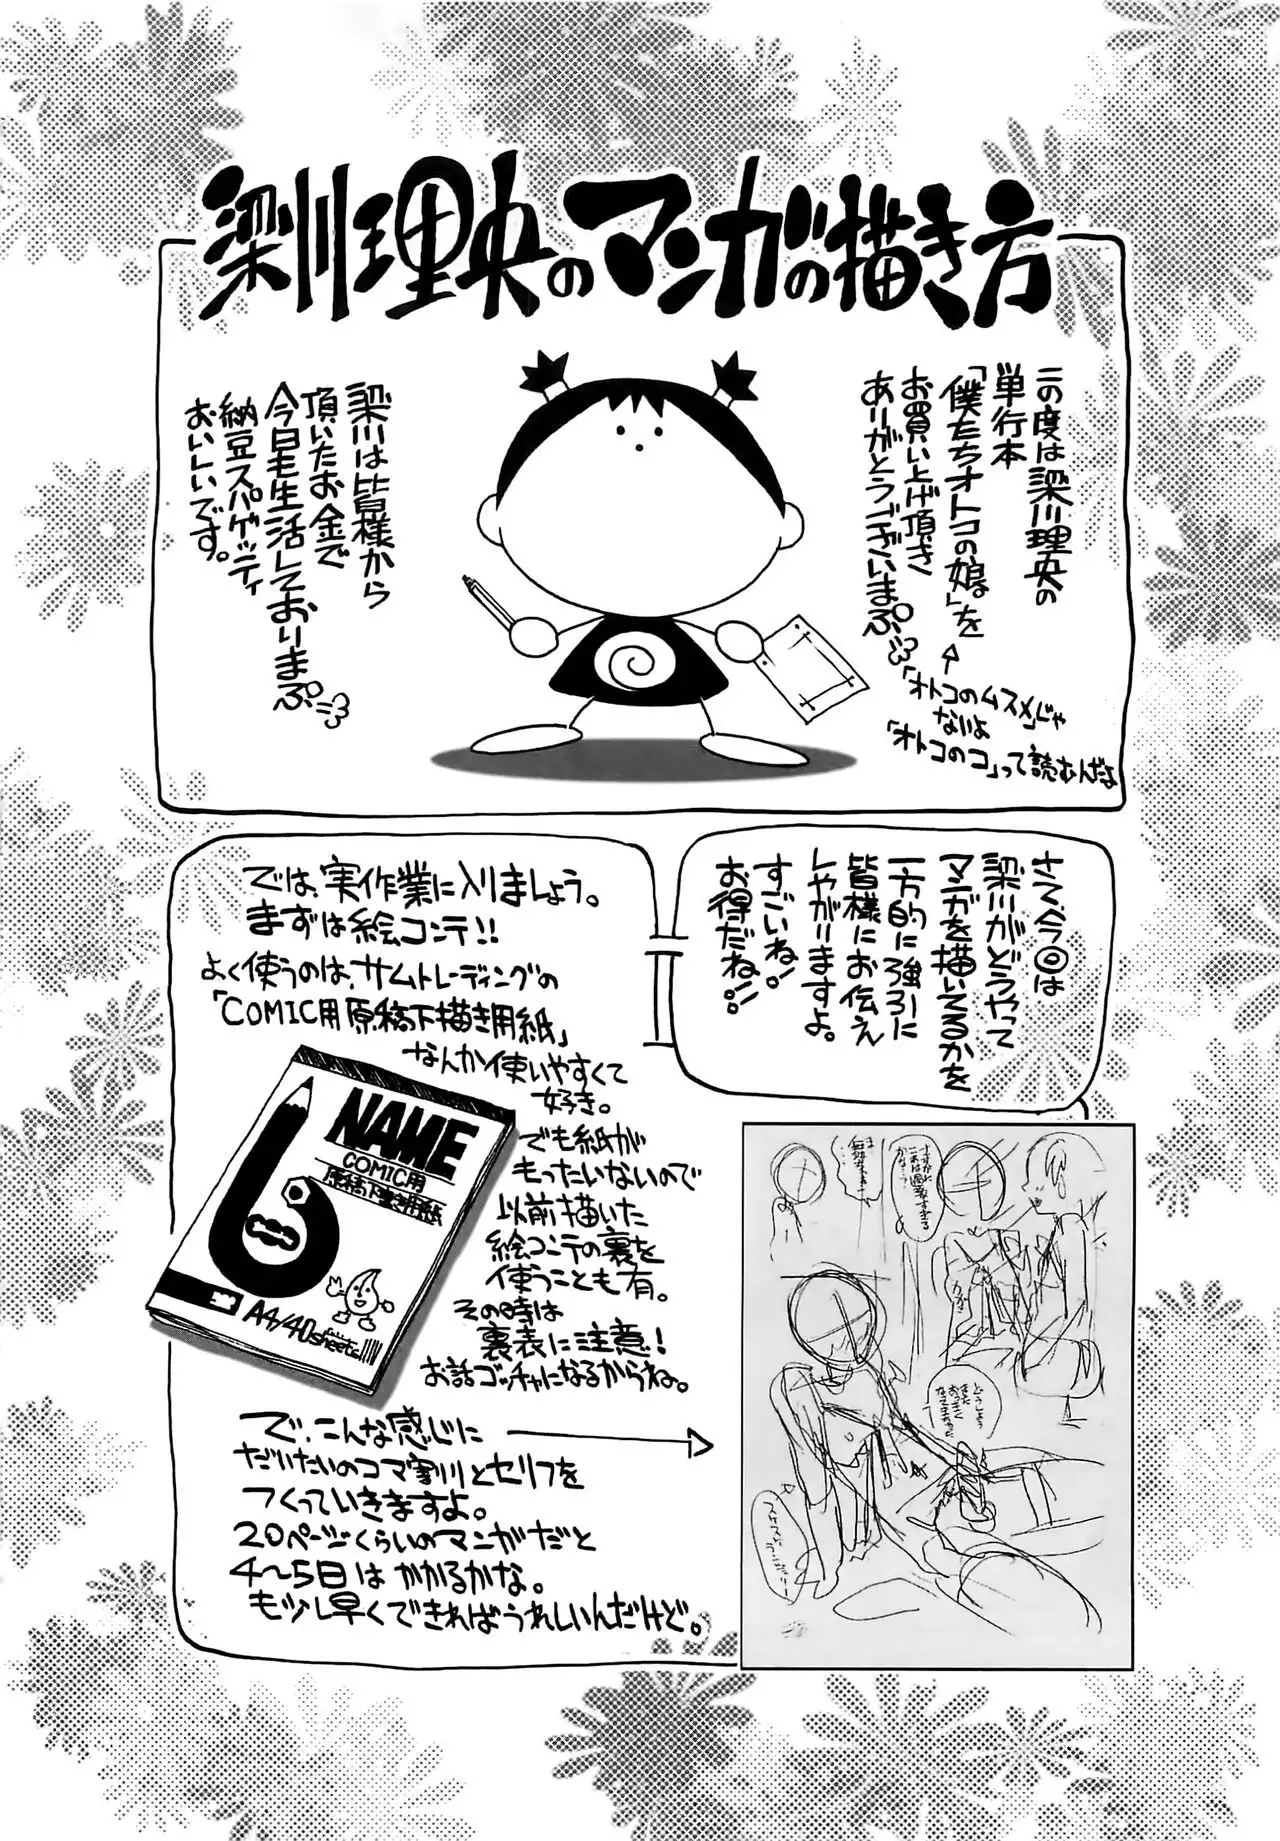 梁川理央のマンガの描き方
この度は梁川理央の
単行本
「僕たちオトコの娘」を
お買い上げ頂き
ありがとうございまぷ
「オトコのムスメ」じゃ
ないよ
「オトコのコ」って読むんだよ
梁川は皆様から
頂いたお金で
今日も生活しておりまぷ
納豆スパゲッティ
おいしいです。
さて、今回は
梁川がどうやって
マンガを描いてるかを
一方的に強引に
皆様にお伝え
しやがりますよ。
すごいね!
お得だね!!
では、実作業に入りましょう。
まずは絵コンテ!!
よく使うのは、サムトレーディングの
「COMIC用原稿下描き用紙」
なんか使いやすくて
好き。
でも紙が
もったいないので
以前描いた
絵コンテの裏を
使うことも有。
その時は
裏表に注意!
お話ゴッチャになるからね。
NAME
COMIC用
原稿下書き用紙
A4/40sheets
で、こんな感じに
だいたいのコマ割りとセリフを
つくっていきますよ。
20ページくらいのマンガだと
4〜5日はかかるかな。
もう少し早くできればうれしいんだけど。
さすがに
これは過激すぎる
かな…?
どうしよう
また
おっきく
なってきちゃった